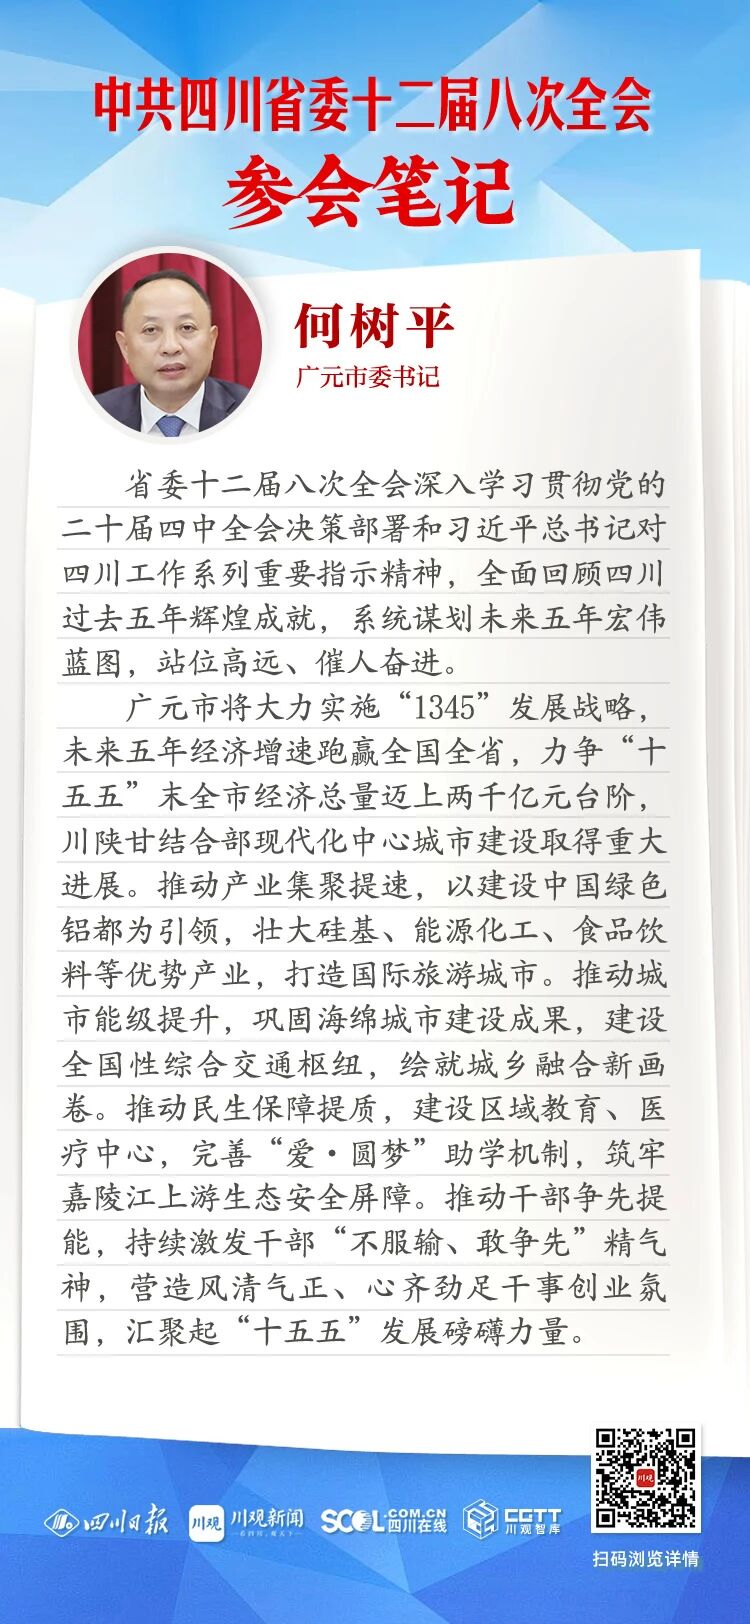 中共四川省委十二届八次全会
参会笔记
何树平
广元市委书记
省委十二届八次全会深入学习贯彻党的
二十届四中全会决策部署和习近平总书记对
四川工作系列重要指示精神，全面回顾四川
过去五年辉煌成就，系统谋划未来五年宏伟
蓝图，站位高远、催人奋进。
广元市将大力实施“1345”发展战略，
未来五年经济增速跑赢全国全省，力争“十
五五”末全市经济总量迈上两千亿元台阶，
川陕甘结合部现代化中心城市建设取得重大
进展。推动产业集聚提速，以建设中国绿色
铝都为引领，壮大硅基、能源化工、食品饮
料等优势产业，打造国际旅游城市。推动城
市能级提升，巩固海绵城市建设成果，建设
全国性综合交通枢纽，绘就城乡融合新画
卷。推动民生保障提质，建设区域教育、医
疗中心，完善“爱·圆梦”助学机制，筑牢
嘉陵江上游生态安全屏障。推动干部争先提
能，持续激发干部“不服输、敢争先”精气
神，营造风清气正、心齐劲足干事创业氛
围，汇聚起“十五五”发展磅礴力量。
四川日报
川观
川观新闻
SCOL.COM.CN
四川在线
CGTT
川观智库
川观
扫码浏览详情